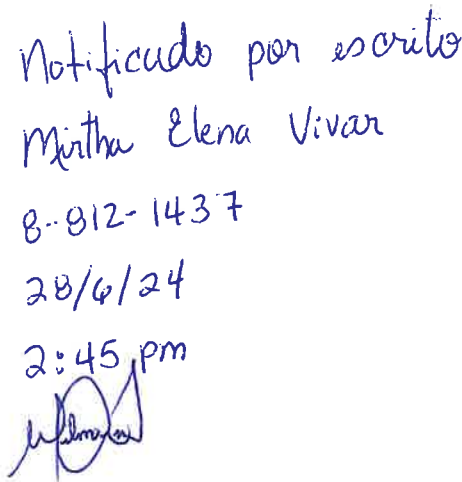 Notificado por escrito
Mirtha Elena Vivar
8-812-1437
28/6/24
2:45 pm